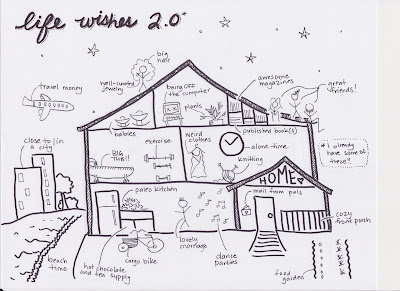 life wishes 2.0*
big
hair
travel money
well-curated
jewelry
being OFF
the computer
awesome
magazines
great
friends!
plants
babies
exercise
weird
clothes
published book(s)
alone-time
* I already
have some of
these!!
close to/in
a city
BIG
TUB!!
knitting
paleo kitchen
HOME
mail from pals
cozy
front porch
lovely
marriage
dance
parties
cargo bike
hot chocolate
and tea supply
beach
time
food
garden